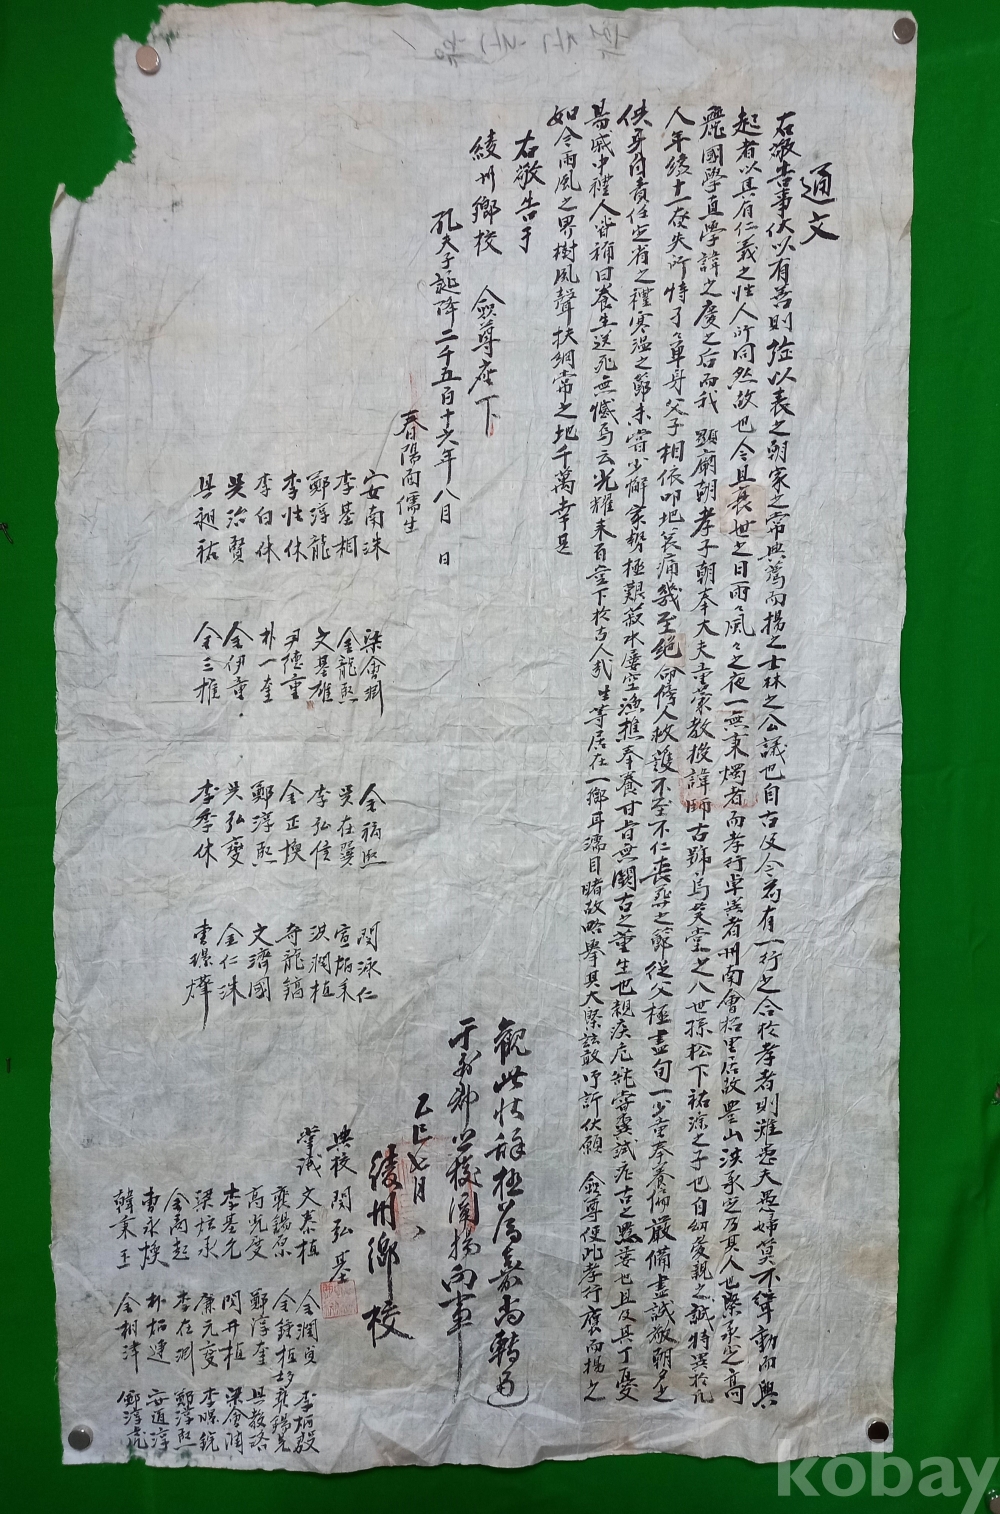 通文
右敬告事伏以有善則從以表之朝家之常典薦而揚之士林之公議也自古及今苟有一行之合於孝者則雖愚夫愚婦莫不聳動而興
起者以其有仁義之性人所同然故也今且衰世之日雨雨風風之夜一無秉燭者而孝行卓異者州南會松里居故豊山洪承之乃其人也
麗國學直學諱之慶之后而我 顯廟朝孝子朝奉大夫童蒙教授諱師古號烏莫堂之八世孫祐淙之子也自幼愛親之誠特異於凡
人年纔十一夜失所恃孑孑單身父子相依叩地哀痛幾至絕命傍人救護不至不仁喪葬之節從父極盡旬一少童奉養偏嚴備盡誠敬朝夕之
供身自責任定省之禮寒溫之節未嘗少懈家勢極艱菽水屢空漁樵奉養甘旨無闕古之董生也親疾危能嘗糞試症古之黔婁也且及其丁憂
易戚中禮人皆稱曰養生送死無憾焉云光耀來百豈下於古人哉生等居在一鄉耳濡目睹故略舉其大槩玆敢呼訴伏願 僉尊使此孝行薦而揚之
如今雨風之界樹風聲扶綱常之地千萬幸甚
右敬告于
綾州鄉校 僉尊座下
孔夫子誕降二千五百十六年八月 日
春陽面儒生
安南洙 梁會潤 金福熙 閔泳仁
李基相 金龍熙 吳在巽 宣炳禾
鄭淳龍 文基雄 李弘信 洪潤植
李性休 尹德重 金正煥 奇龍鎬
李白休 朴一奎 鄭淳熙 文濟國
吳治賢 金伊童 吳弘燮 金仁洙
具昶祐 金三推 李季休 曹璟煒
觀此狀辭極爲嘉尚轉通
于列郡公校闡揚向事
乙巳七月
綾州鄉校
典校 閔弘基
掌議 文泰植 金潤宣 李炳毅
裵錫泉 金鍾植 裵錫羌
高光度 鄭淳奎 具敎珞
李基先 閔丹植 梁會潤
梁炫承 廉元燮 李暻銃
金商起 李在潤 鄭淳熙
曹永煥 朴炤達 安道淳
韓秉玉 金相洋 鄭淳虎
kobay